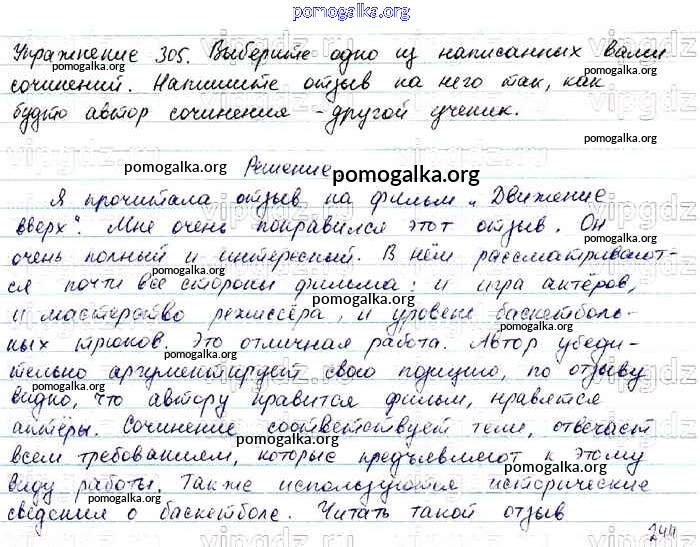 pomogalka.org
Упражнение 305. Выберите одно из написанных вами
pomogalka.org pomogalka.org
сочинений. Напишите отзыв на него так, как
pomogalka.org
будто автор сочинения - другой ученик.
pomogalka.org pomogalka.org
Решение
pomogalka.org
Я прочитала отзыв на фильм „Движение
вверх". Мне очень понравился этот отзыв. Он
pomogalka.org pomogalka.org
очень полный и интересный. В нём рассматривают-
pomogalka.org pomogalka.org
ся почти все стороны фильма: и игра актёров,
pomogalka.org
и мастерство режиссёра, и уровень баскетболь-
pomogalka.org
ных трюков. Это отличная работа. Автор убеди-
pomogalka.org
тельно аргументирует свою позицию, по отзыву
pomogalka.org pomogalka.org
видно, что автору нравится фильм, нравятся
pomogalka.org
актёры. Сочинение соответствует теме, отвечает
pomogalka.org
всем требованиям, которые предъявляют к этому
pomogalka.org
виду работы. Также используются исторические
pomogalka.org pomogalka.org
сведения о баскетболе. Читать такой отзыв
pomogalka.org
244